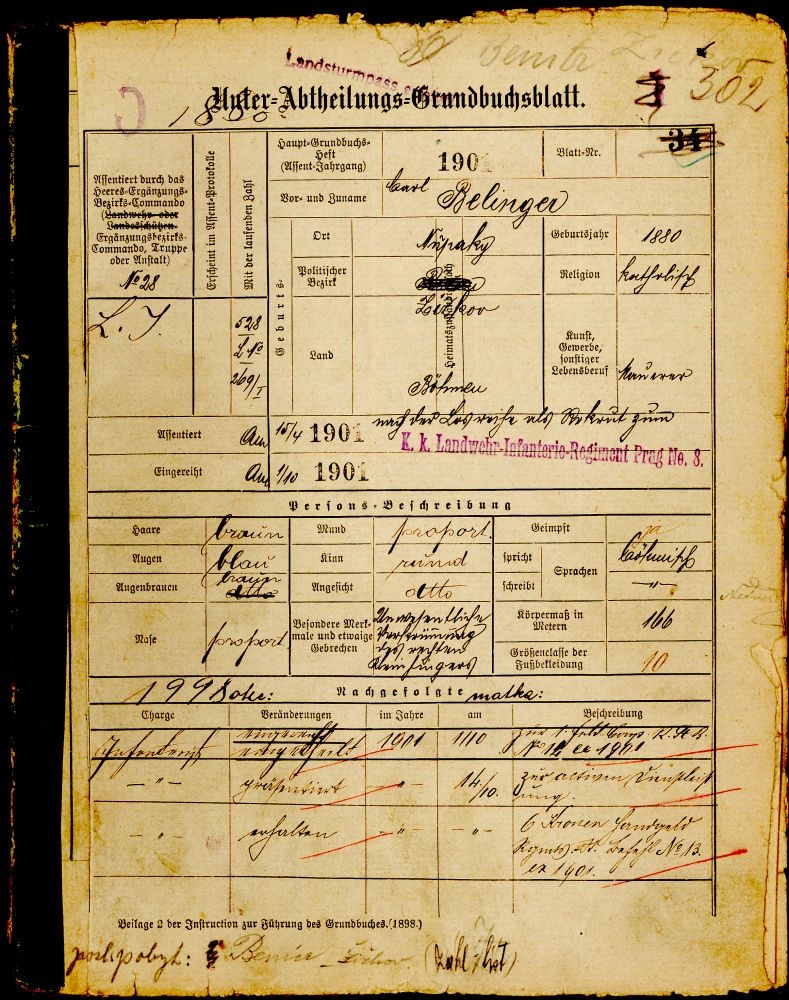 Landsturmpass
Unter-Abtheilungs-Grundbuchsblatt.
302
Assentiert durch das Heeres-Ergänzungs-Bezirks-Commando (Landwehr- oder Landesschützen-Ergänzungsbezirks-Commando, Truppe oder Anstalt)
№ 28
Erscheint im Assent-Protokolle
Mit der laufenden Zahl
Haupt-Grundbuchs-Heft (Assent-Jahrgang)
1901
Blatt-Nr.
34
Vor- und Zuname
Carl Belinger
Geburts-
Ort
Nupaky
Geburtsjahr
1880
Politischer Bezirk
Žižkov
Heimatszuständigkeit
Religion
katholisch
Land
Böhmen
Kunst, Gewerbe, sonstiger Lebensberuf
Maurer
L. I.
528
L №
269/I
Assentiert
Am 15/4 1901
nach der Losreihe als Rekrut zum
K. k. Landwehr-Infanterie-Regiment Prag No. 8.
Eingereiht
Am 1/10 1901
Persons-Beschreibung
Haare
braun
Mund
proport.
Geimpft
ja
Augen
blau
Kinn
rund
spricht
Sprachen
böhmisch
Augenbrauen
braun
Angesicht
dtto
schreibt
-"-
Nase
proport.
Besondere Merkmale und etwaige Gebrechen
Unwesentliche
Verkrümmung
des rechten
Kleinfingers
Körpermaß in Metern
166
Größenclasse der Fußbekleidung
10
Nachgefolgte
matka:
Charge
Veränderungen
im Jahre
am
Beschreibung
Infanterist
eingetheilt
1901
1/10
zur 1. Feld Comp.
ex 1901
-"-
präsentiert
-"-
14/10.
zur activen Dienstleist
ung.
-"-
erhalten
-"-
-"-
6 Kronen Handgeld
Regmts. Befehl № 13.
ex 1901.
Beilage 2 der Instruction zur Führung des Grundbuches. (1898.)
posl. pobyt: